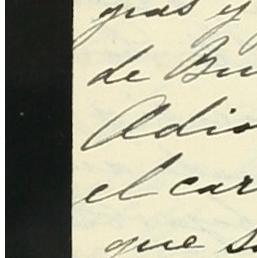 y
de Bu
Adio
el car
que s